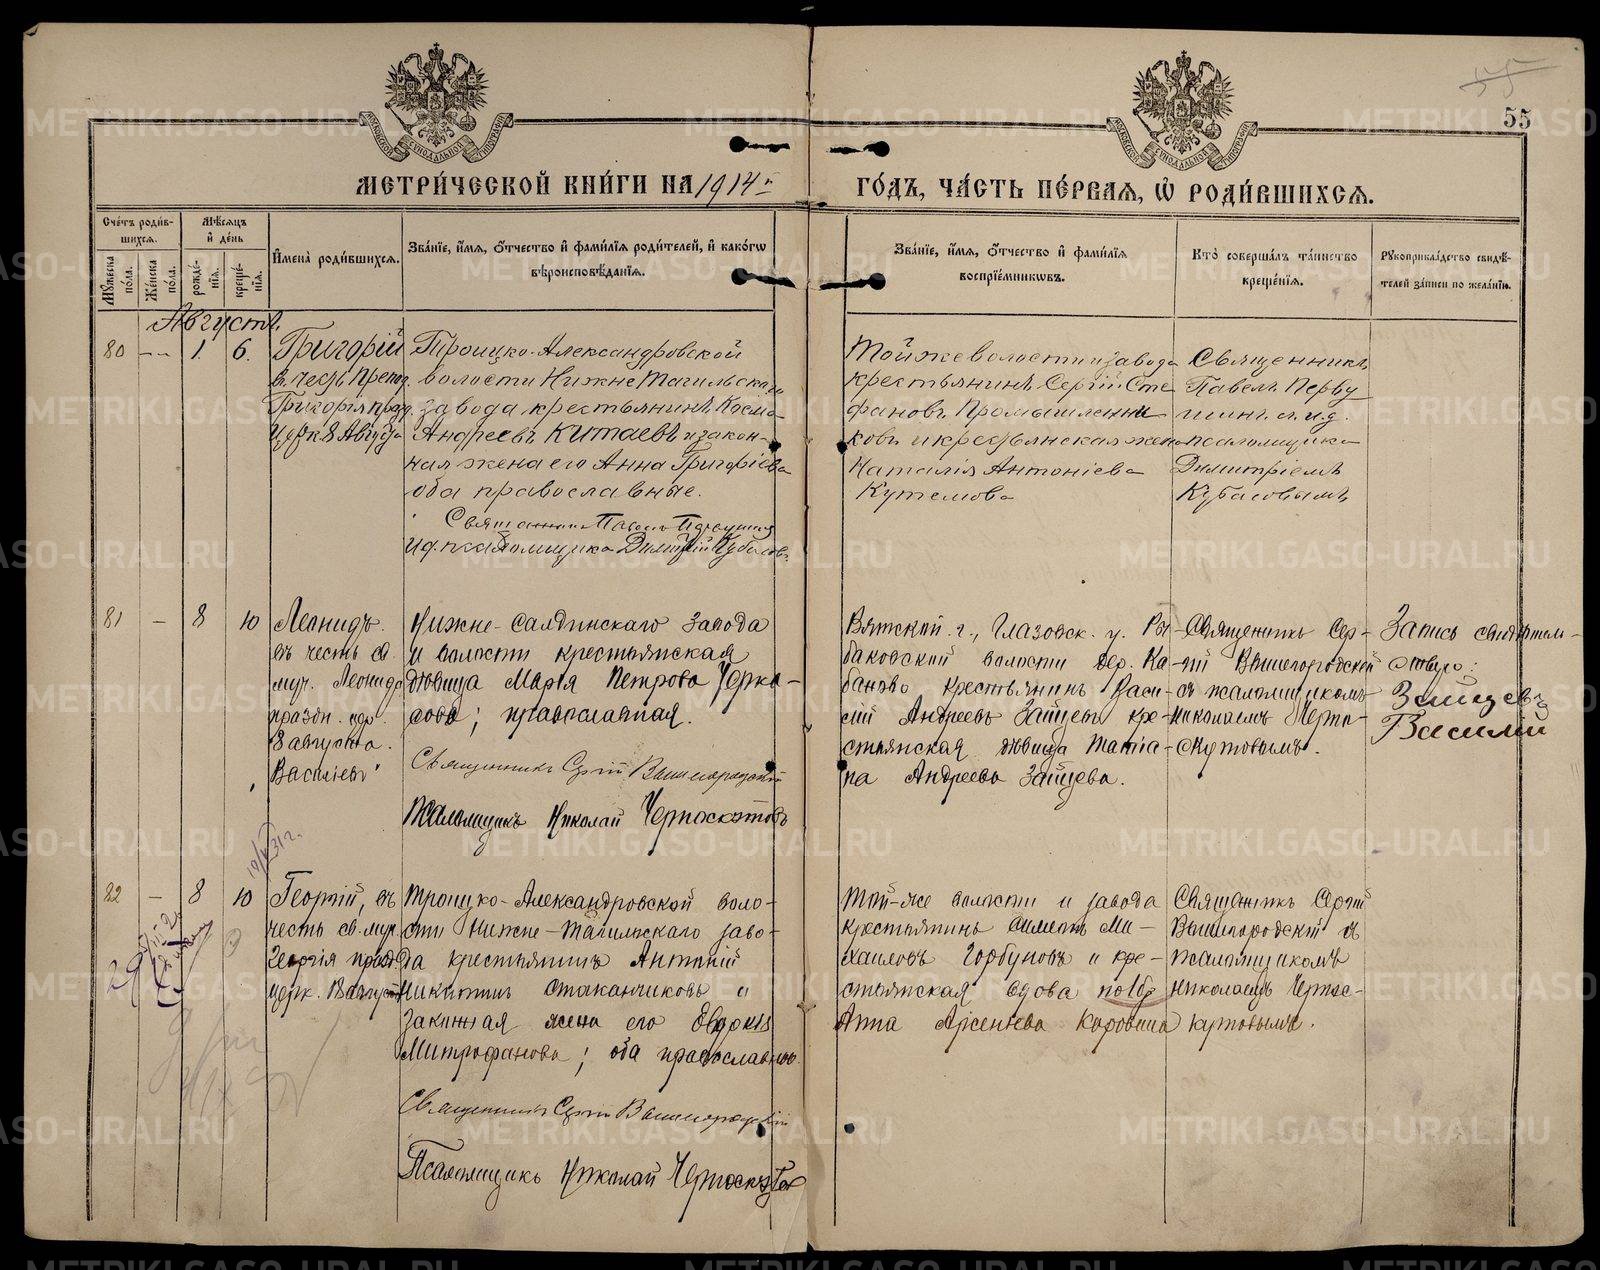 55
55
МЕТРИ́ЧЕСКОЙ КНИ́ГИ НА 1914 г.
ГО́ДЪ, ЧА́СТЬ ПЕ́РВАЯ, Ѡ҆ РОДИ́ВШИХСЯ.
Сче́тъ роди́в-
шихся.
Мѣ́сяцъ
и҆ де́нь
Мꙋ́жеска
по́ла.
Же́нска
по́ла.
рожде́-
нїя.
креще́-
нїя.
И҆мена̀ роди́вшихся.
Зва́нїе, и҆́мя, ѻ҆́тчество и҆ фами́лїя роди́телей, и҆ како́гѡ
вѣроисповѣ́данїя.
Зва́нїе, и҆́мя, ѻ҆́тчество и҆ фами́лїя
воспрїе́мникѡвъ.
Кто̀ соверша́лъ та́инство
креще́нїя.
Рꙋкоприкла́дство свидѣ́-
телей за́писи по жела́нїю.
Августъ.
80 -- 1. 6.
Григорій
въ честь Препод.
Григорія праздн.
церк 8 Августа
Троицко-Александровской
волости Нижне Тагильскаго
завода крестьянинъ Косма
Андреевъ Китаевъ и закон-
ная жена его Анна Григоріева
оба православные.
Священникъ Павелъ Первушинъ
И. д. псаломщика Димитрій Кубасовъ
Той же волости и завода
крестьянинъ Сергій Сте
фановъ Промышленни
ковъ и крестьянская жена
Наталія Антоніева
Кутемова
Священникъ
Павелъ Перву
шинъ с и. д.
псаломщика
Димитріемъ
Кубасовымъ
81 - 8 10
Леонидъ.
въ честь св.
муч. Леонида
праздн. цер.
8 августа.
Васильевъ
Нижне-Салдинскаго завода
и волости крестьянская
дѣвица Марія Петрова Черка-
сова; православная.
Священникъ Сергій Вышегородскій
Псаломщикъ Николай Черноскутовъ
Вятской. г., Глазовск. у. Ры-
баковской волости дер. Ка-
баново крестьянинъ Васи-
лій Андреевъ Зайцевъ кре-
стьянская дѣвица Татіа-
на Андреева Зайцева.
Священникъ Сер-
гій Вышегородскій
съ псаломщикомъ
Николаемъ Черно-
скутовымъ.
Запись свидѣтель-
ствую:
Зайцевъ
Василій
82 - 8 10
Георгій, въ
честь св. муч.
Георгія празд.
церк. 8 августа
Троицко-Александровской воло-
сти Нижне-Тагильскаго заво-
да крестьянинъ Антоній
Никитинъ Стаканчиковъ и
законная жена его Евдокія
Митрофанова; оба православные.
Священникъ Сергій Вышегородскій
Псаломщикъ Николай Черноскутовъ
Той-же волости и завода
крестьянинъ Симеонъ Ми-
хаиловъ Горбуновъ и кре-
стьянская вдова
Анна Арсеньева Коровина
Священникъ Сергій
Вышегородскій съ
псаломщикомъ
Николаемъ Чернос-
кутовымъ.
29
METRIKI.GASO-URAL.RU